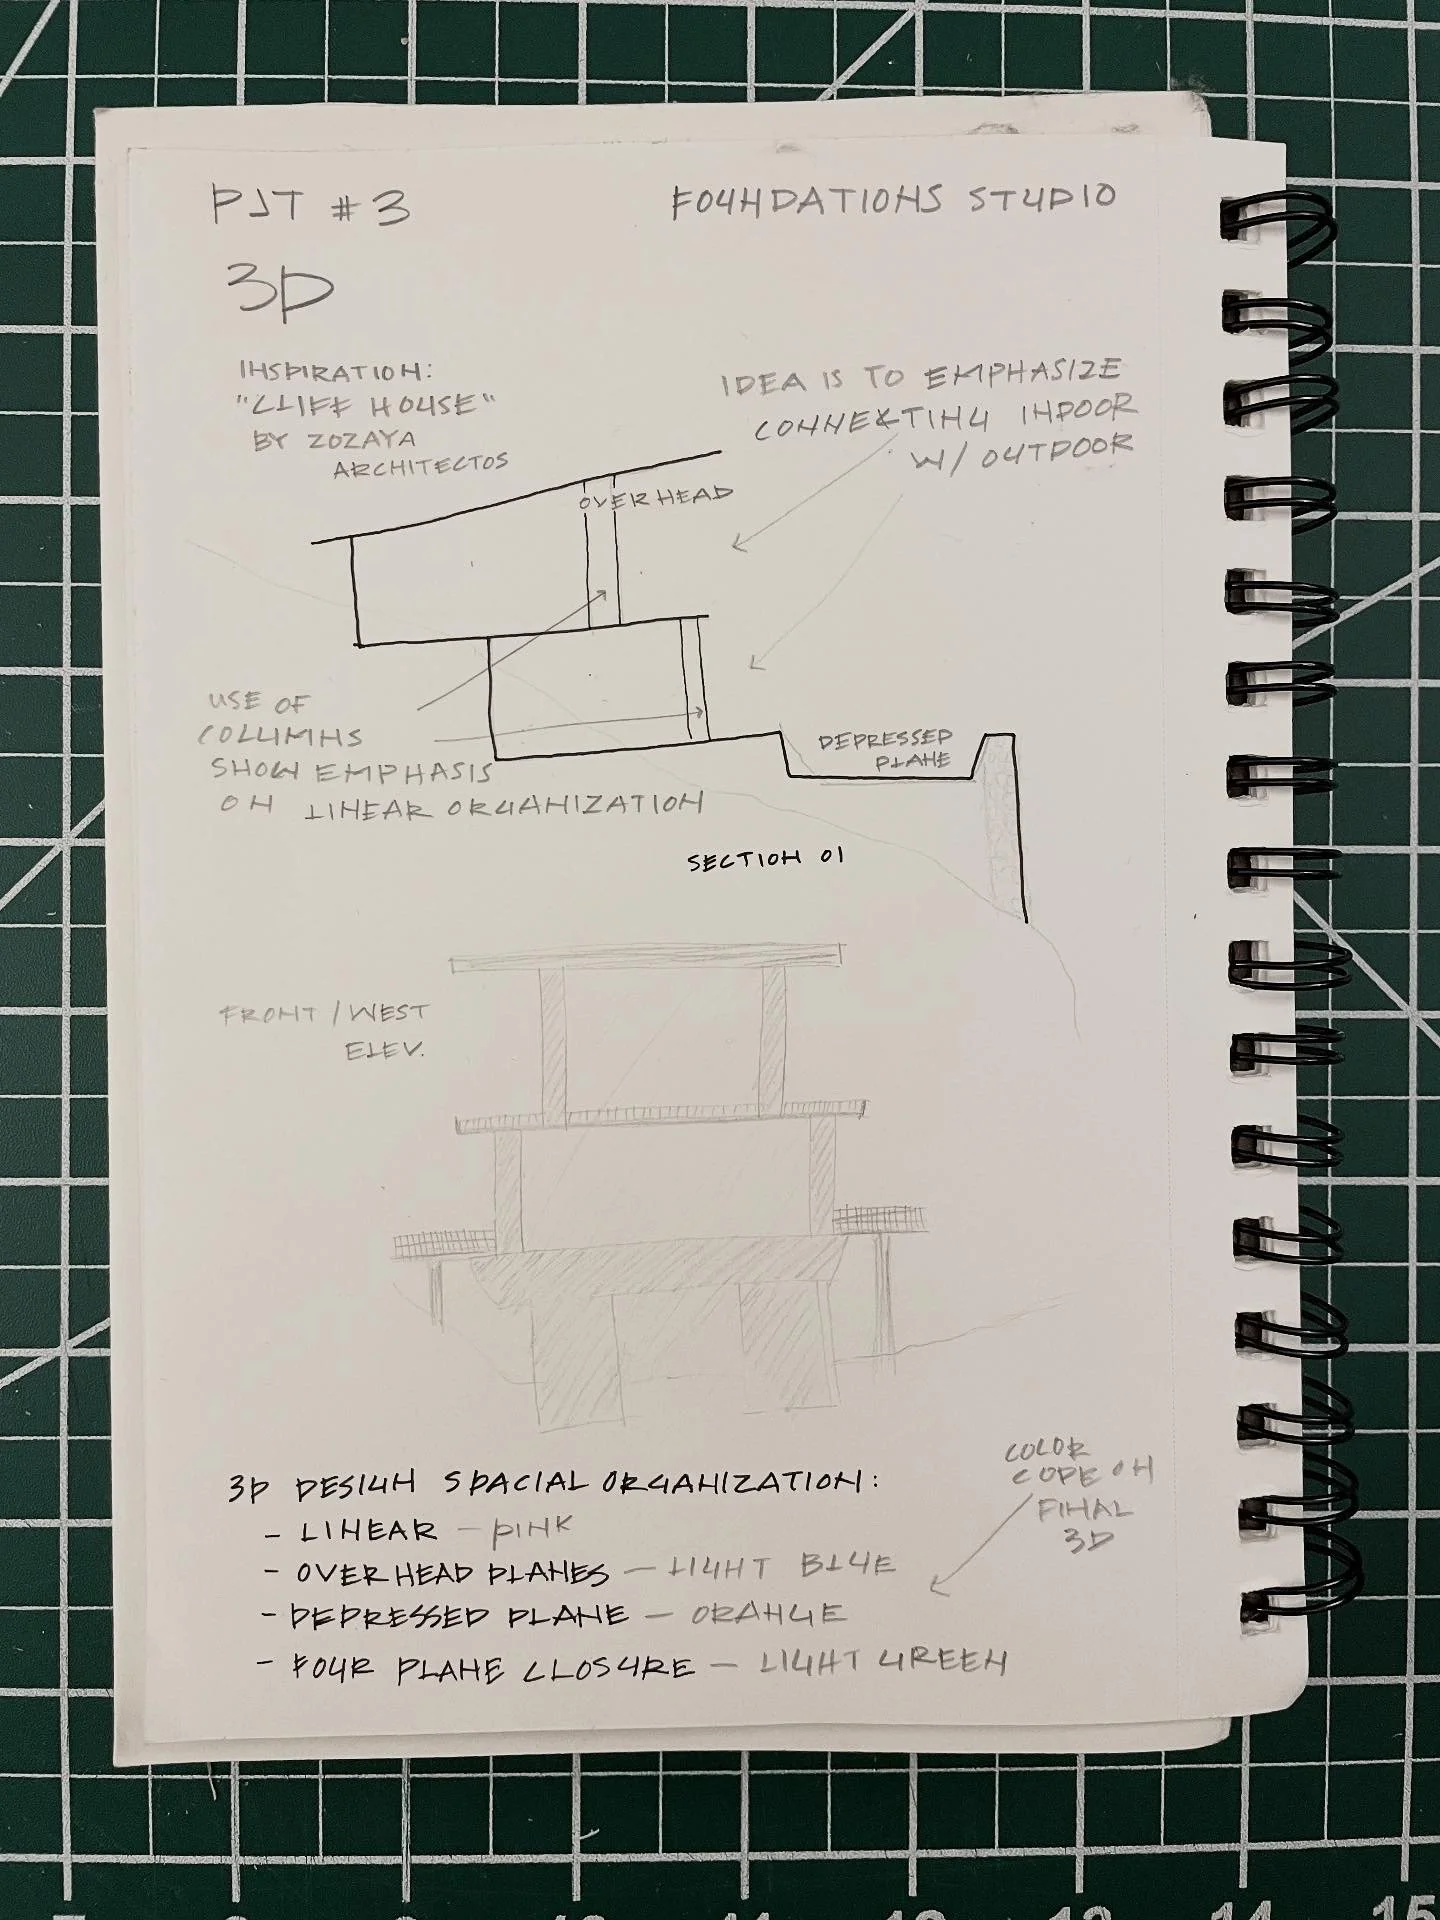 PJT #3
FOUNDATIONS STUDIO
3D
INSPIRATION:
"CLIFF HOUSE"
BY ZOZAYA
ARCHITECTOS
IDEA IS TO EMPHASIZE
CONNEXTING INDOOR
W/ OUTDOOR
OVERHEAD
USE OF
COLUMNS
SHOW EMPHASIS
ON LINEAR ORGANIZATION
DEPRESSED
PLANE
SECTION 01
FRONT / WEST
ELEV.
COLOR
CODE ON
FINAL
3D
3D DESIGN SPACIAL ORGANIZATION:
- LINEAR - PINK
- OVERHEAD PLANES - LIGHT BLUE
- DEPRESSED PLANE - ORANGE
- FOUR PLANE CLOSURE - LIGHT GREEN
7 8 9 10 11 12 13 14 15